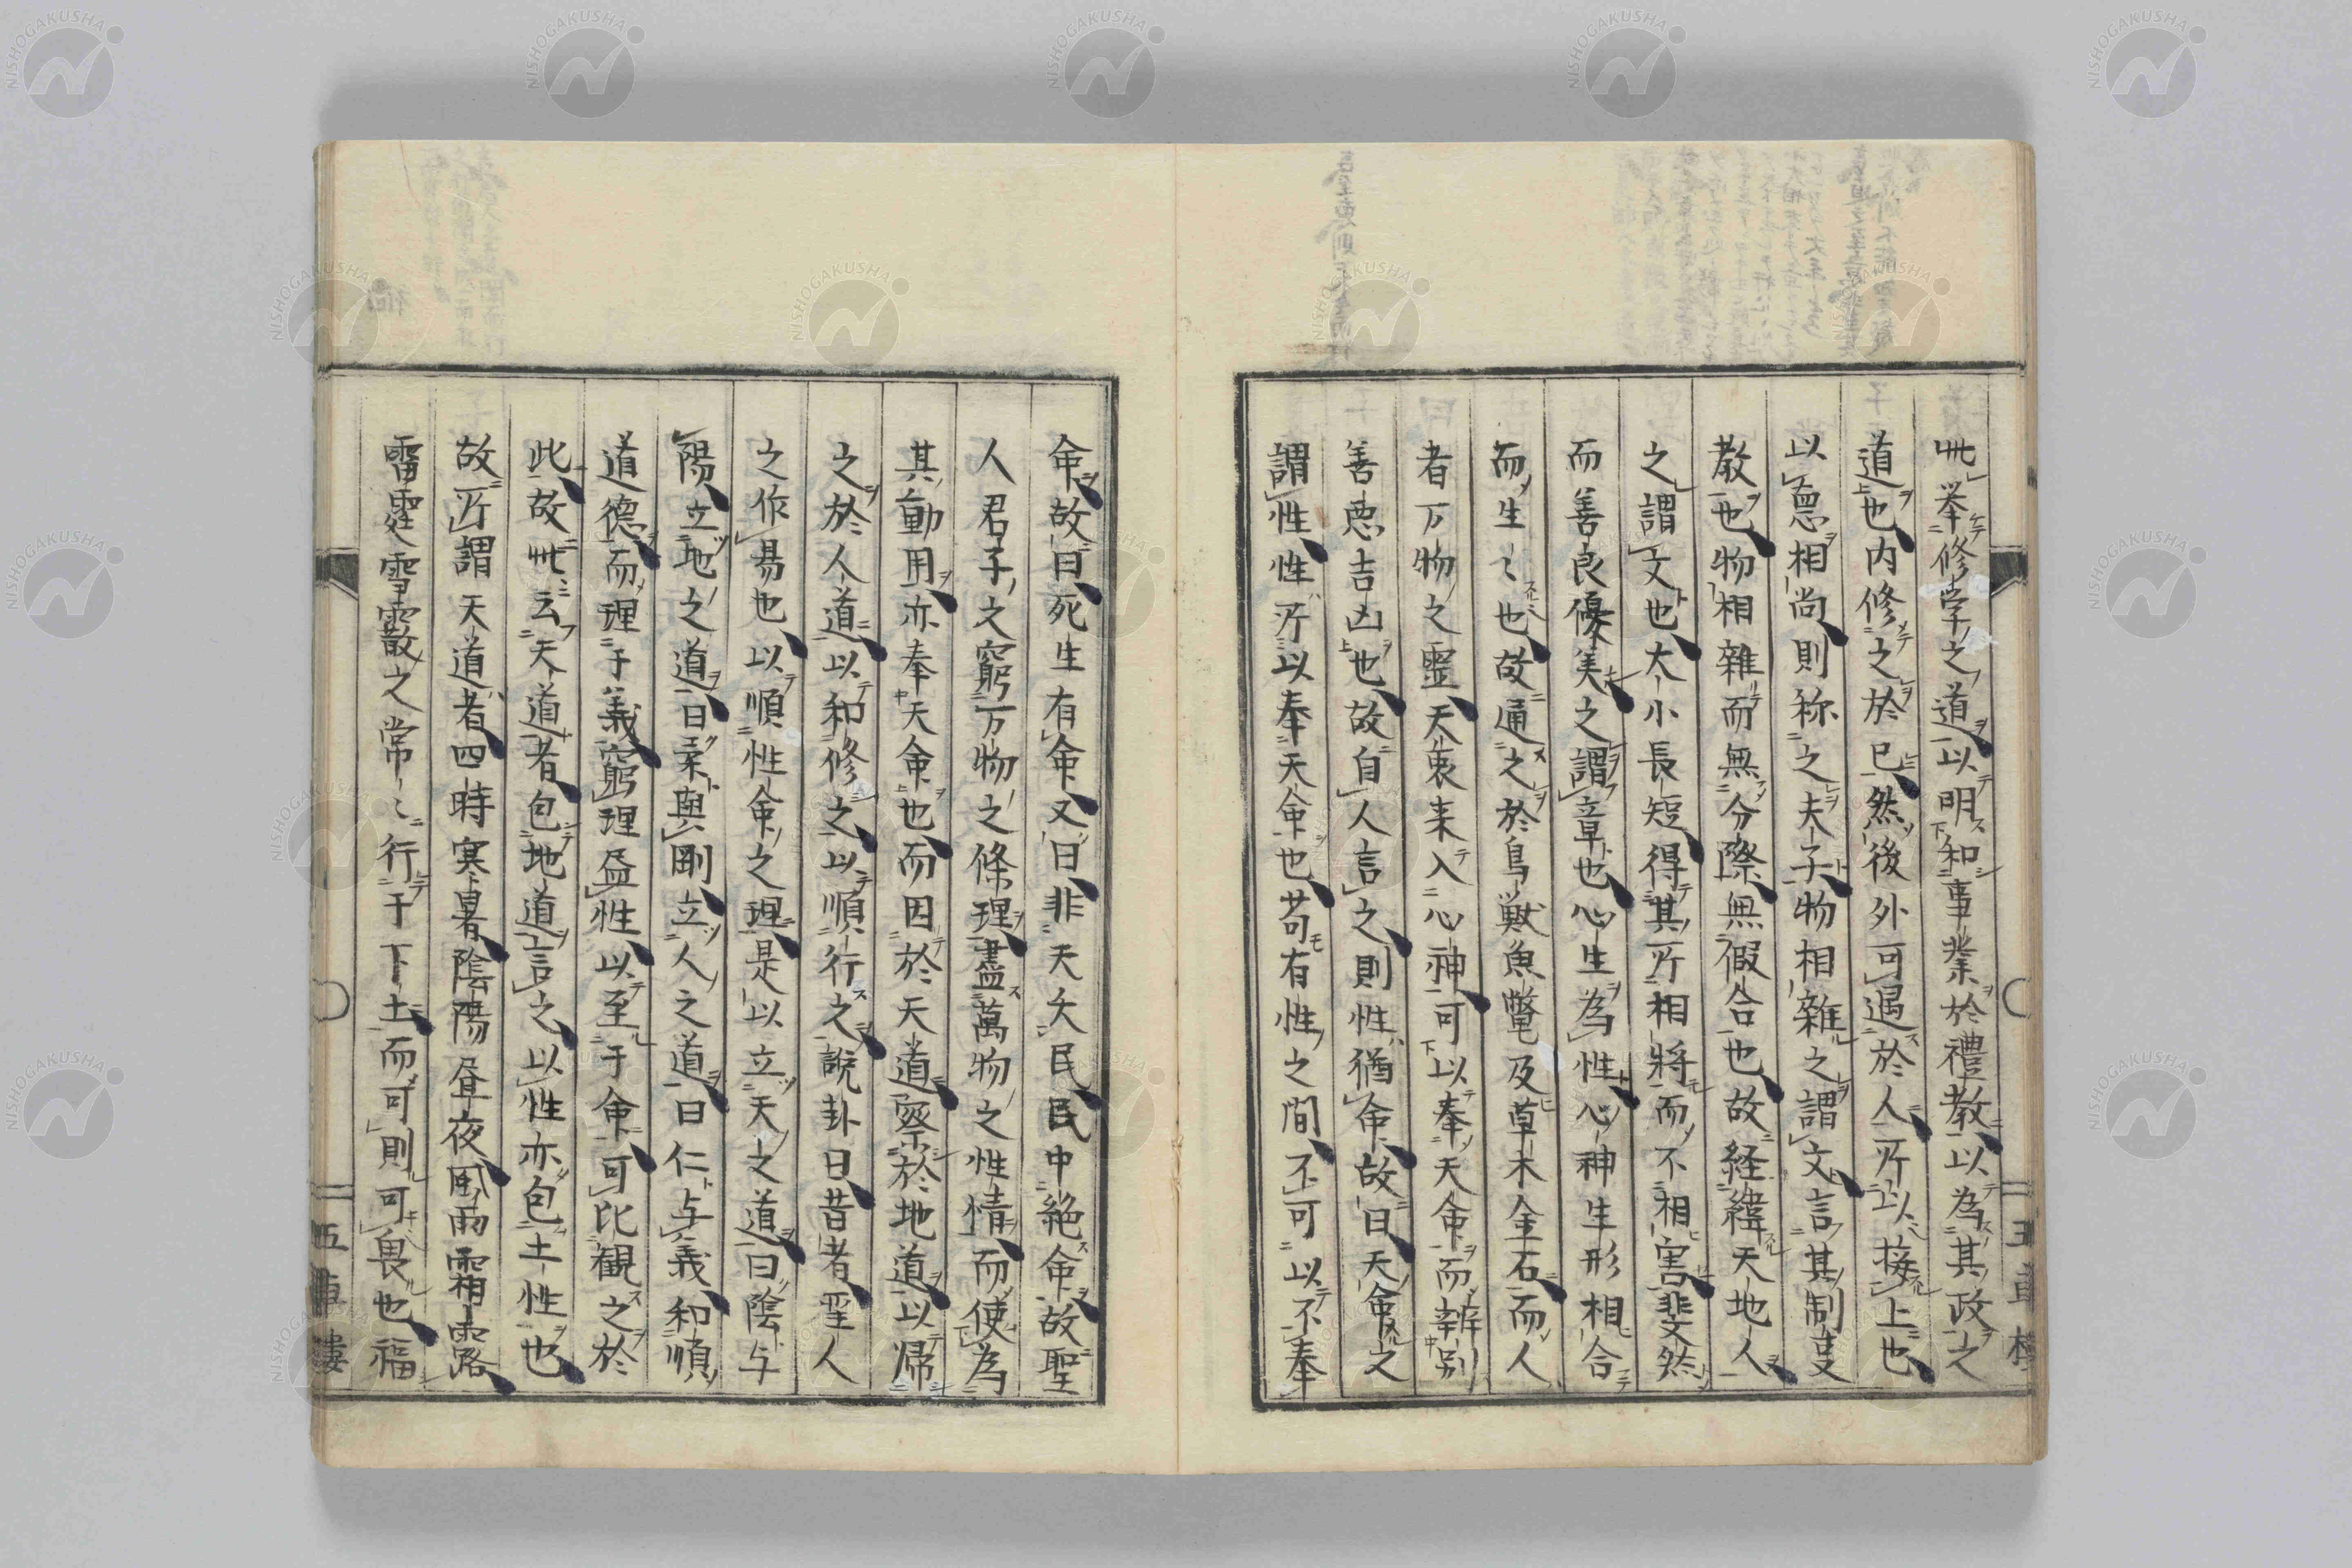 此挙修学之道以明和事業於禮教以為其政之
道也内修之於己然後外可遇於人所以接上也
以悳相尚則称之夫子物相雜之謂文言其制度
教也物相雜而無分際無假合也故経緯天地人
之謂文也大小長短得其所相將而不相害斐然
而善良優美之謂章也心生為性心神生形相合
而生〻也故通之於鳥獣魚鼈及草木金石而人
者万物之霊天衷来入心神可以奉天命而辨別
善悪吉凶也故自人言之則性猶命故曰天命之
謂性性所以奉天命也苟有性之間不可以不奉
命故曰死生有命又曰非天夭民民中絶命故聖
人君子之窮万物之條理盡萬物之性情而使為
其動用亦奉天命也而因於天道察於地道以帰
之於人道以和修之以順行之説卦曰昔者聖人
之作易也以順性命之理是以立天之道曰陰与
陽立地之道曰柔與剛立人之道曰仁与義和順
道德而理于義窮理盡性以至于命可比観之於
此故此云天道者包地道言之以性亦包土性也
故所謂天道者四時寒暑陰陽昼夜風雨霜露
雷霆雪霰之常〻行于下土而可則可畏也福
五車樓
NISHOGAKUSHA